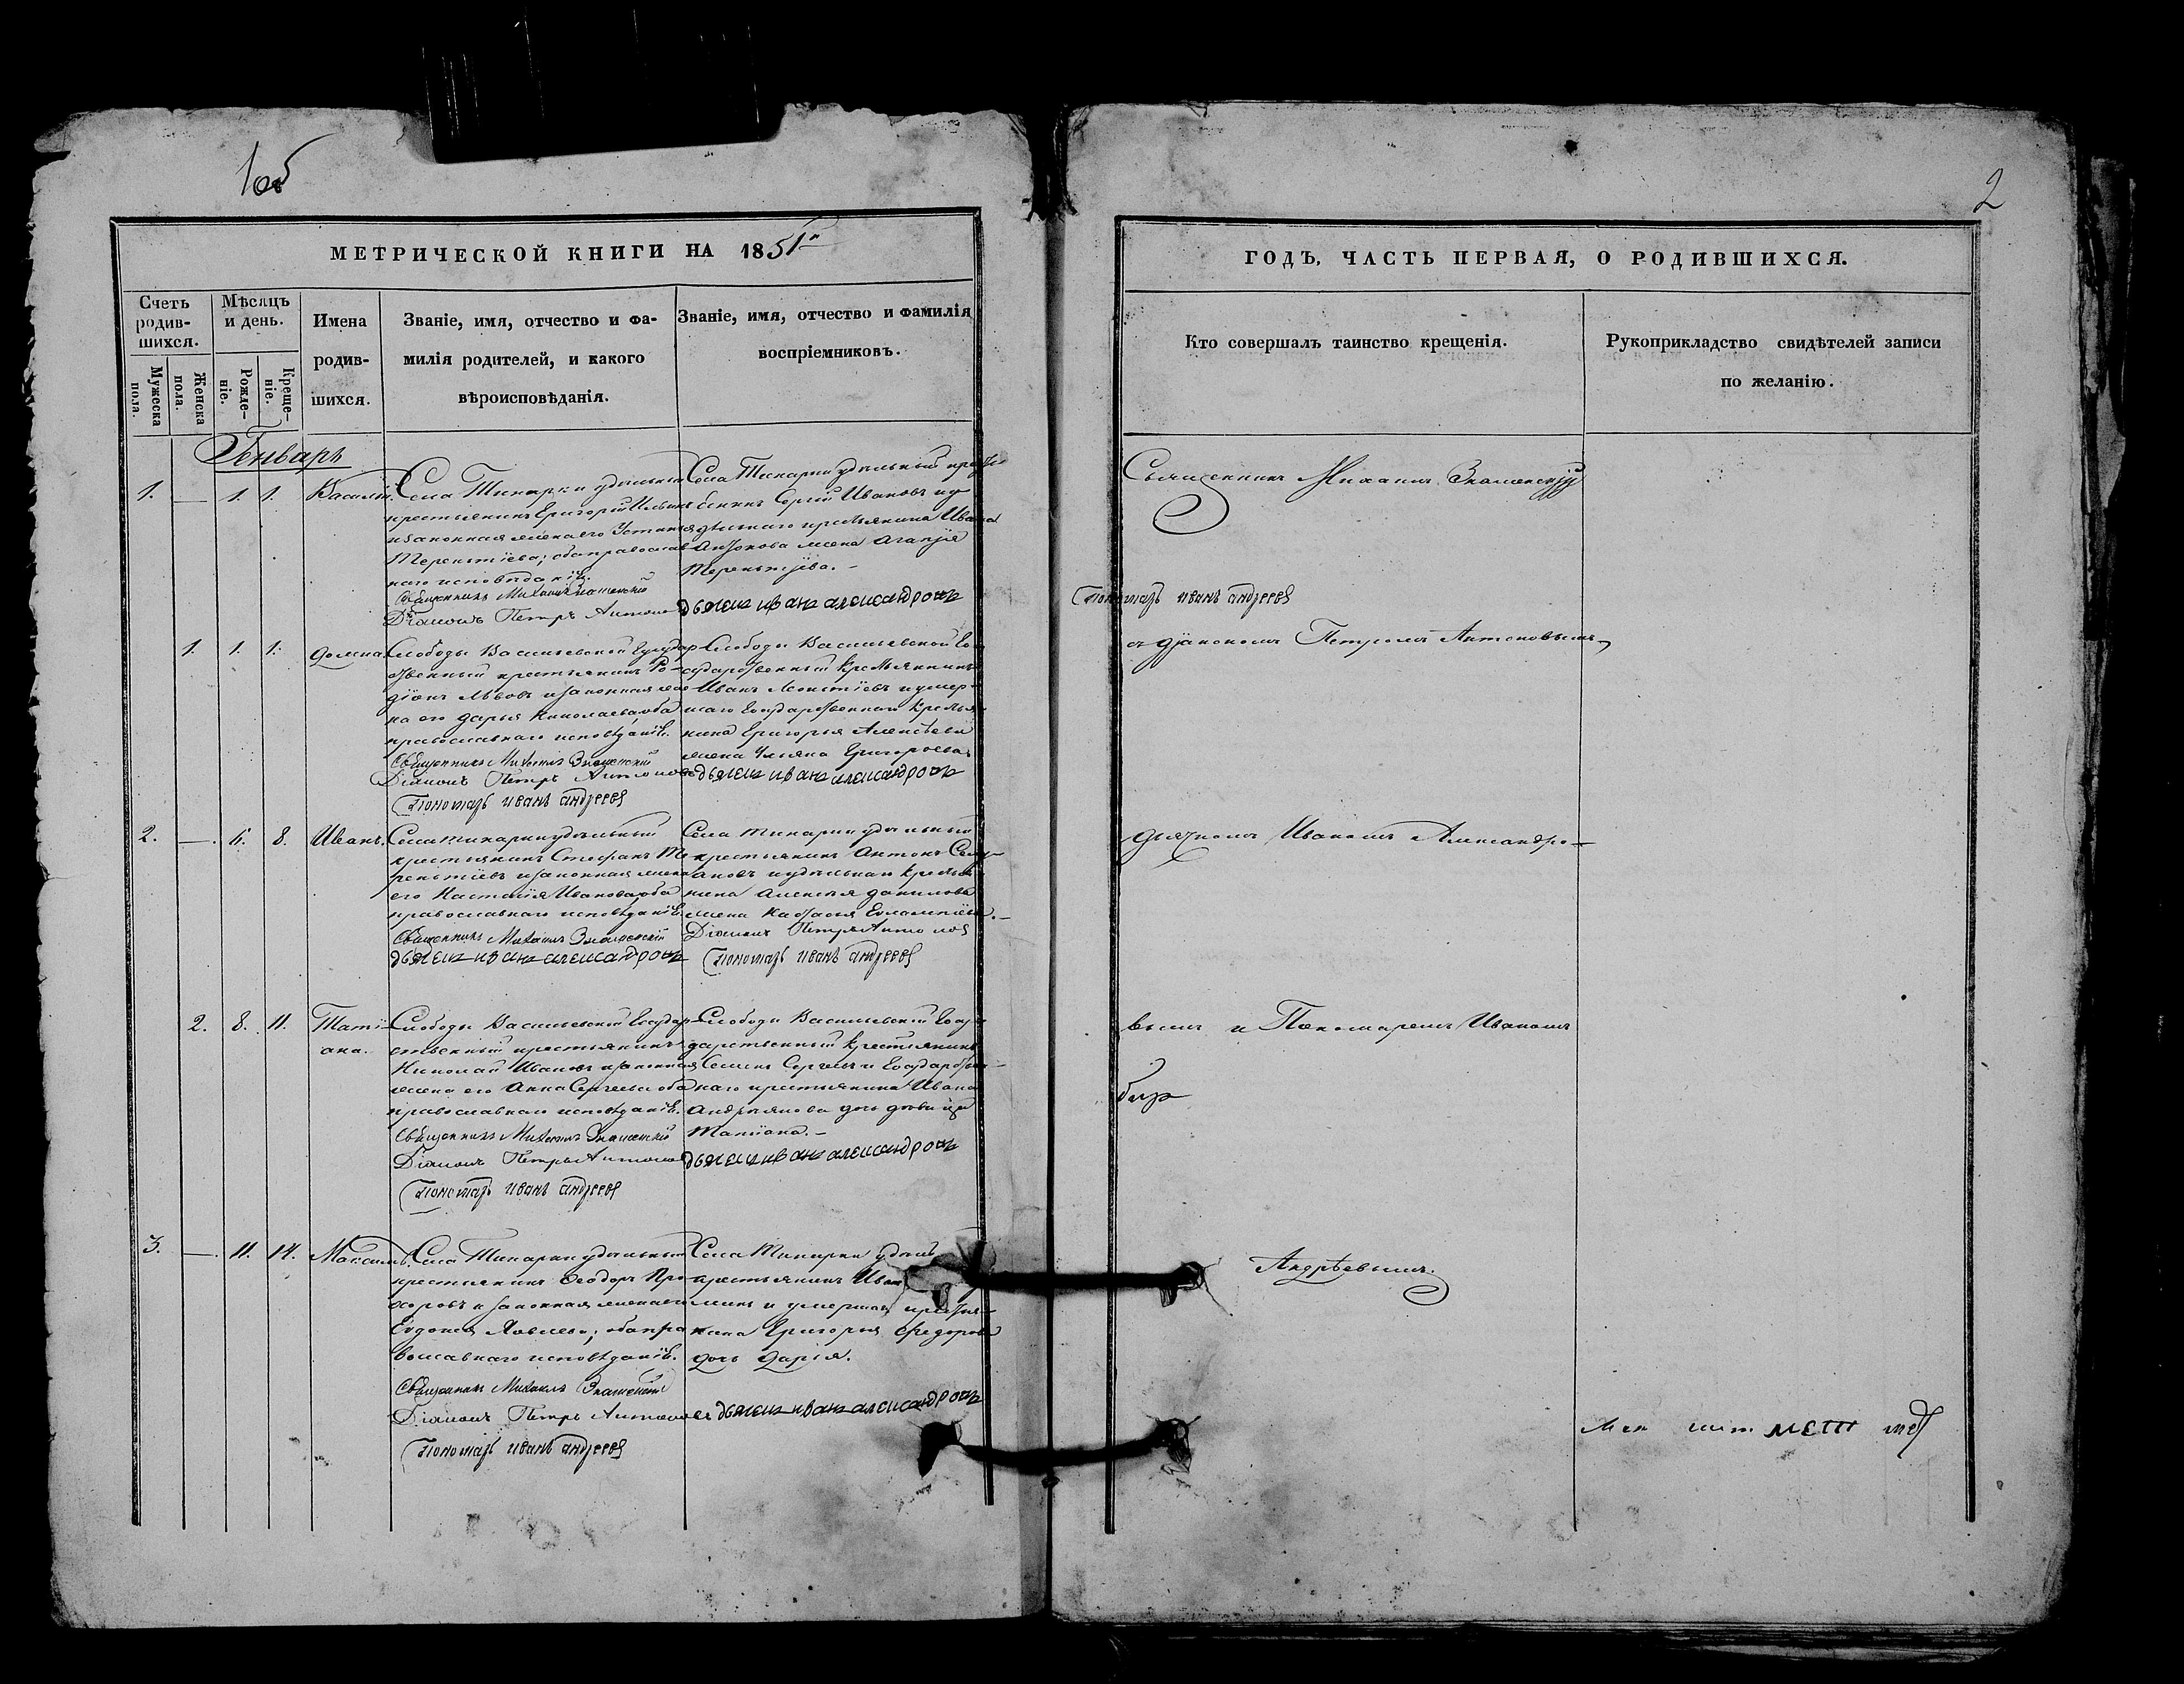 1об
2
МЕТРИЧЕСКОЙ КНИГИ НА 1851й
Счетъ родив-шихся.
Мужеска пола.
Женска пола.
Мѣсяцъ и день.
Рожде-ніе.
Креще-ніе.
Имена
родив-
шихся.
Званіе, имя, отчество и фа-
милія родителей, и какого
вѣроисповѣданія.
Званіе, имя, отчество и фамилія
воспріемниковъ.
Генварь
1. — 1. 1. Василій.
Села Тинарки удѣльный
крестьянинъ Григорій Ильинъ
и законная жена его Устинія
Терентіева; оба православ
наго исповѣданія.
Священникъ Михаилъ Знаменскій
Діаконъ Петръ Антоновъ
Села Тинарки удѣльный кресть
янинъ Сергій Ивановъ и у
дѣльнаго крестьянина Ивана
Антонова жена Агапія
Терентіева. —
дьячекъ иванъ александровъ
1. 1. 1. Домна
Слободы Васильевской Государ
ственный крестьянинъ Ро-
діонъ Львовъ и законная же
на его Дарья Николаева, оба
православнаго исповѣданія.
Священникъ Михаилъ Знаменскій
Діаконъ Петръ Антоновъ
Пономарь иванъ андреевъ
Слободы Васильевской Го
сударственный крестьянинъ
Иванъ Леонтіевъ и умер-
шаго Государственнаго крестья
нина Григорья Алексѣева
жена Ульяна Григорьева
дьячекъ иванъ александровъ
2. — 6. 8. Иванъ.
Села Тинарки удѣльный
крестьянинъ Стефанъ Те
рентіевъ и законная жена
его Настасія Иванова, оба
православнаго исповѣданія.
Священникъ Михаилъ Знаменскій
дьячекъ иванъ александровъ
Села Тинарки удѣльный
крестьянинъ Антонъ
и удѣльнаго крестья
нина Алексѣя Данилова
жена Настасья Евлампіева. —
Діаконъ Петръ Антоновъ
Пономарь иванъ андреевъ
2. 8. 11. Таті-
ана.
Слободы Васильевской Государ
ственный крестьянинъ
Николай Ивановъ и законная
жена его Анна Сергеева оба
православнаго исповѣданія.
Священникъ Михаилъ Знаменскій
Діаконъ Петръ Антоновъ
Пономарь иванъ андреевъ
Слободы Васильевской Госу-
дарственный крестьянинъ
Семенъ Сергѣевъ и Государствен-
наго крестьянина Ивана
Андріянова дочь дѣвица
Татіана. —
дьячекъ иванъ александровъ
3. — 11. 14. Максимъ.
Села Тинарки удѣльный
крестьянинъ Ѳеодоръ Про
хоровъ и законная жена его
Евдокія; оба пра
вославнаго исповѣданія.
Священникъ Михаилъ Знаменскій
Діаконъ Петръ Антоновъ
Пономарь иванъ андреевъ
Села Тинарки удѣль
крестьянинъ Иван
и умершаго крестья-
нина Григорья Ѳедорова
дочь Дарія.
дьячекъ иванъ александровъ
ГОДЪ, ЧАСТЬ ПЕРВАЯ, О РОДИВШИХСЯ.
Кто совершалъ таинство крещенія.
Рукоприкладство свидѣтелей записи
по желанію.
Священникъ Михаилъ Знаменскій
Пономарь иванъ андреевъ
съ діакономъ Петромъ Антоновымъ,
дьячкомъ Иваномъ Александро-
вымъ и Пономаремъ Иваномъ
Андрѣевымъ.